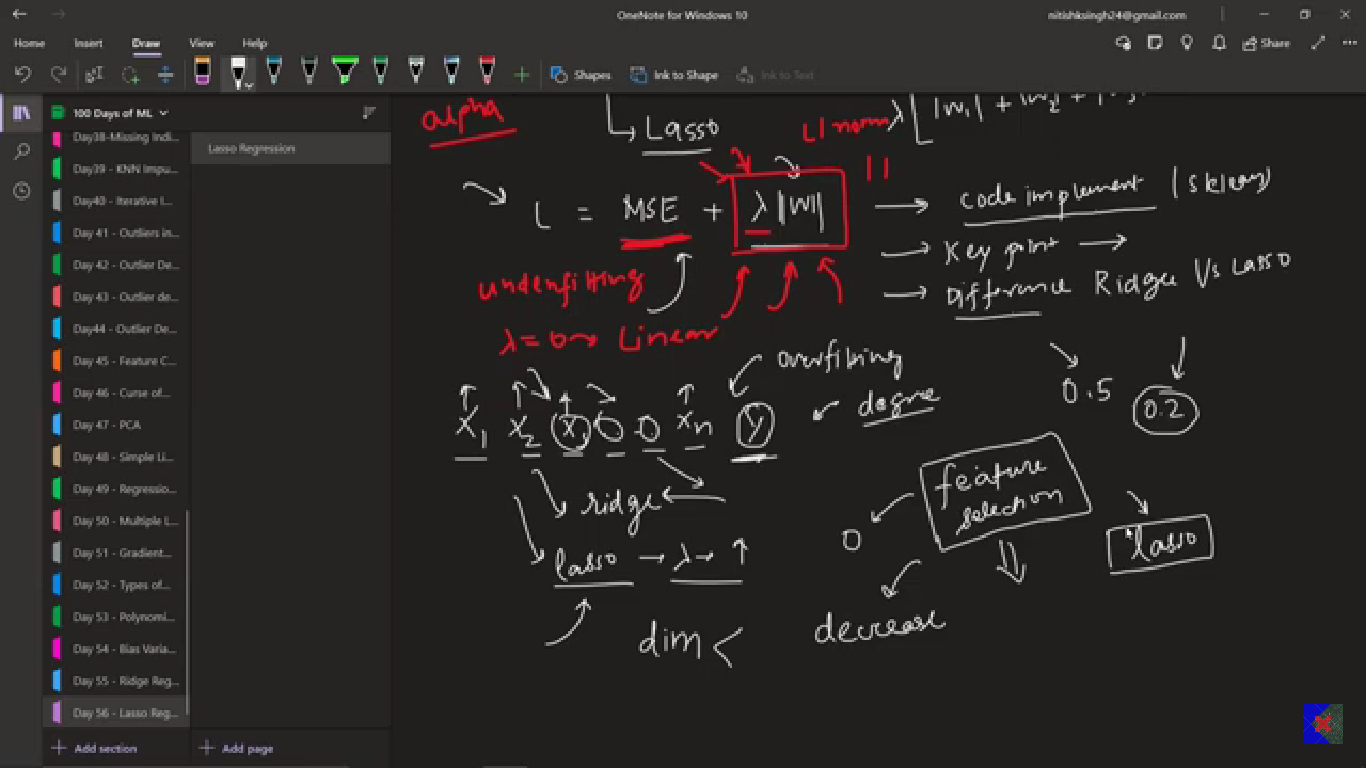 OneNote for Windows 10
nitishksingh24@gmail.com
Home Insert Draw View Help
Share
Shapes Ink to Shape Ink to Text
100 Days of ML
Day38-Missing Indi...
Day39 - KNN Impu...
Day40 - Iterative I...
Day 41 - Outliers in...
Day 42 - Outlier De...
Day 43 - Outlier de...
Day44 - Outlier De...
Day 45 - Feature C...
Day 46 - Curse of...
Day 47 - PCA
Day 48 - Simple Li...
Day 49 - Regressio...
Day 50 - Multiple L...
Day 51 - Gradient...
Day 52 - Types of...
Day 53 - Polynomi...
Day 54 - Bias Varia...
Day 55 - Ridge Reg...
Day 56 - Lasso Reg...
Add section
Lasso Regression
Add page
alpha
Lasso
L1 norm
λ [ |w1| + |w2| +
||
L = MSE + λ |W|
Code implement (Sklearn)
Key point
Difference Ridge Vs Lasso
underfitting
λ = 0 → Linear
overfitting
X1 X2 X 0 0 Xn y
degree
0.5 0.2
ridge
feature
selection
0
lasso
lasso → λ → ↑
decrease
dim <